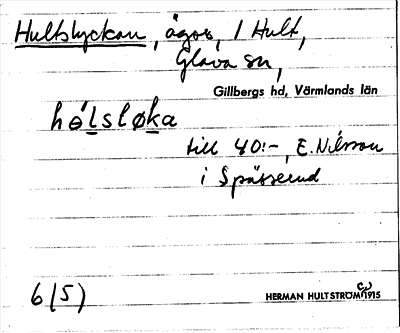 Hultslyckan, ägor, 1 Hult,
Glava sn,
Gillbergs hd, Värmlands län
hólsløka
till 40:-, E. Nilsson
i
6(5)
HERMAN HULTSTRÖM 1915